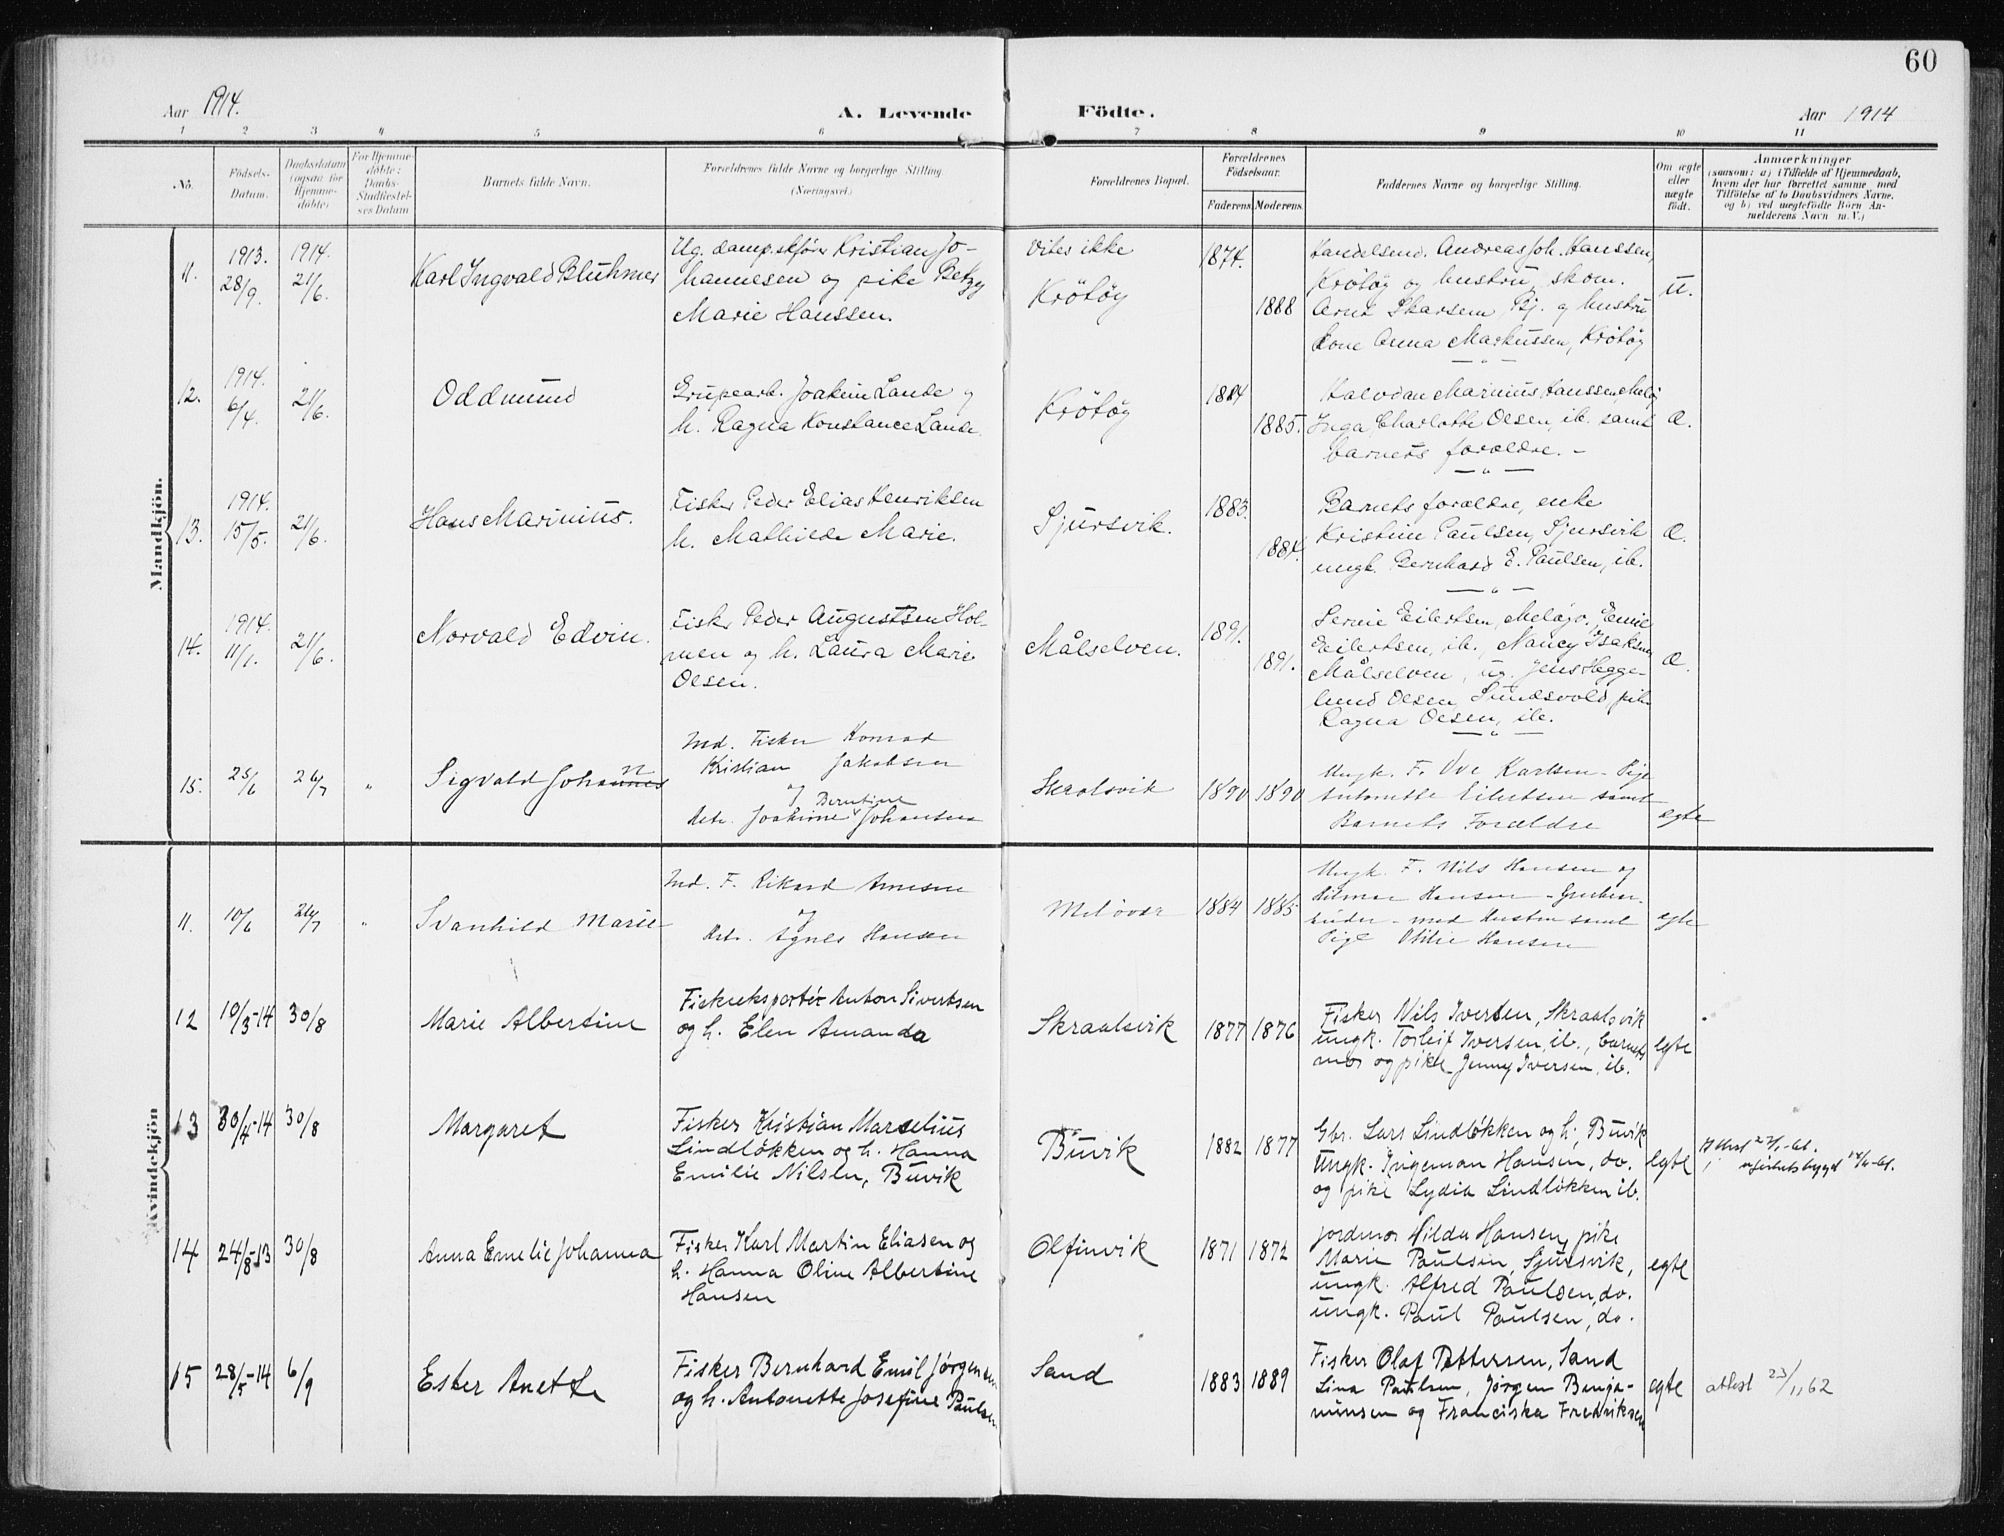 60
Aar 1914. A. Levende Födte. Aar 1914
1 2 3 4 5 6 7 8 9 10 11
No. Födsels-Datum. Daabsdatum (ogsaa for Hjemmedöbte) For Hjemmedöbte: Daabs-Stadfæstelses Datum Barnets fulde Navn. Forældrenes fulde Navne og borgerlige Stilling (Næringsvei.) Forældrenes Bopæl. Forældrenes Födselsaar. Faderens Moderens Faddernes Navne og borgerlige Stilling. Om ægte eller uægte födt. Anmærkninger
(saasom: a) i Tilfælde af Hjemmedaab, hvem der har forrettet samme, med Tilföielse af to Daabsvidners Navne, og b) ved uægtefödte Börn Anmelderens Navn m.V.)
Mandkjön.
11. 1913. 28/9. 1914. 21/6. Karl Ingvald Bluhmer
Ug. dampskfören Kristian Jo-
hannesen og pike Betzy
Marie Hanssen.
Vites ikke
Krötöy
1874. 1888
Handelsmd. Andreas Joh. Hanssen,
Krötöy og hustru, skom.
Arnt Skarsem, Bj. og hustru
Anna Markussen, Krötöy
U.
12. 1914. 6/4. 21/6. Oddmund
Grupearb. Joakim Lande og
h. Ragna Konstance Lande.
Krötöy
1884 1885.
Halvdan Marinius Hanssen, Melöy
Inga Charlotte Olsen, ib. samt
barnets forældre. -
Æ.
13. 1914. 15/5. 21/6. Hans Marinius.
Fisker Peder Elias Henriksen
h. Mathilde Marie.
Sjursvik.
1883. 1884.
Barnets forældre, enke
Kristine Paulsen, Sjursvik
ungk. Bernhard E. Paulsen, ib.
Æ.
14. 1914. 11/1. 21/6. Norvald Edvin.
Fisker Peder Augustsen Hol-
men og h. Laura Marie
Olsen.
Målselven.
1891. 1891.
Eilertsen, Meløvr.
Eilertsen, ib., Nancy Isaksen
Målselven, ug. Jens Hegge-
lund Olsen, pike
Ragna Olsen, ib.
Æ.
15. 25/6 26/7 " Sigvald Johann
Ind. Fisker Konrad
Kristian Jakobsen
og
Hstr. Joakime Berntine Johansen
Skrolsvik
1890 1890
Ungk. F. Ove Karlsen - Pige
Antonette Eilertsen samt
Barnets Forældre
egte
Kvindekjön
11. 10/6 26/7 " Svanhild Marie
Ind. F. Rikard Arnesen
og
Hstr. Agnes Hansen
Melövær
1884 1885
Ungk. F. Nils Hansen og
Hilmar Hansen - Grubear-
beider - med Hustru samt
Pige Otilie Hansen
egte
12 10/3-14 30/8 Marie Albertine
Fiskeeksportör Anton Sivertsen
og h. Elen Amanda
Skraalsvik
1877 1876
Fisker Nils Iversen, Skraalsvik
ungk. Torleif Iversen, ib., barnets
mor og pike Jenny Iversen, ib.
egte
13 30/4-14 30/8 Margaret
Fisker Kristian Marselius
Lindløkken og h. Hanna
Emilie Nilsen, Buvik
Buvik
1882 1877
Gbr. Lars Lindløkken og h., Buvik
Ungk. Ingeman Hansen, do.
og pike Lydia Lindløkken ib.
egte
14 24/8-13 30/8 Anna Emelie Johanna
Fisker Karl Martin Eliasen og
h. Hanna Oline Albertine
Hansen
Olfinvik
1871 1872
Jordmor Hilda Hansen, pike
Marie Paulsen, Sjursvik,
ungk. Alfred Paulsen, do.
ungk. Paul Paulsen, do.
egte
15 28/5-14 6/9 Ester Anette
Fisker Bernhard Emil Jørgensen
og h. Antonette Josefine Paulsen
Sand
1883 1889
Fisker Olaf Pettersen, Sand
Lina Paulsen, Jørgen Benja-
minsen og Franciska Fredriksen
egte
attest 23/11 62